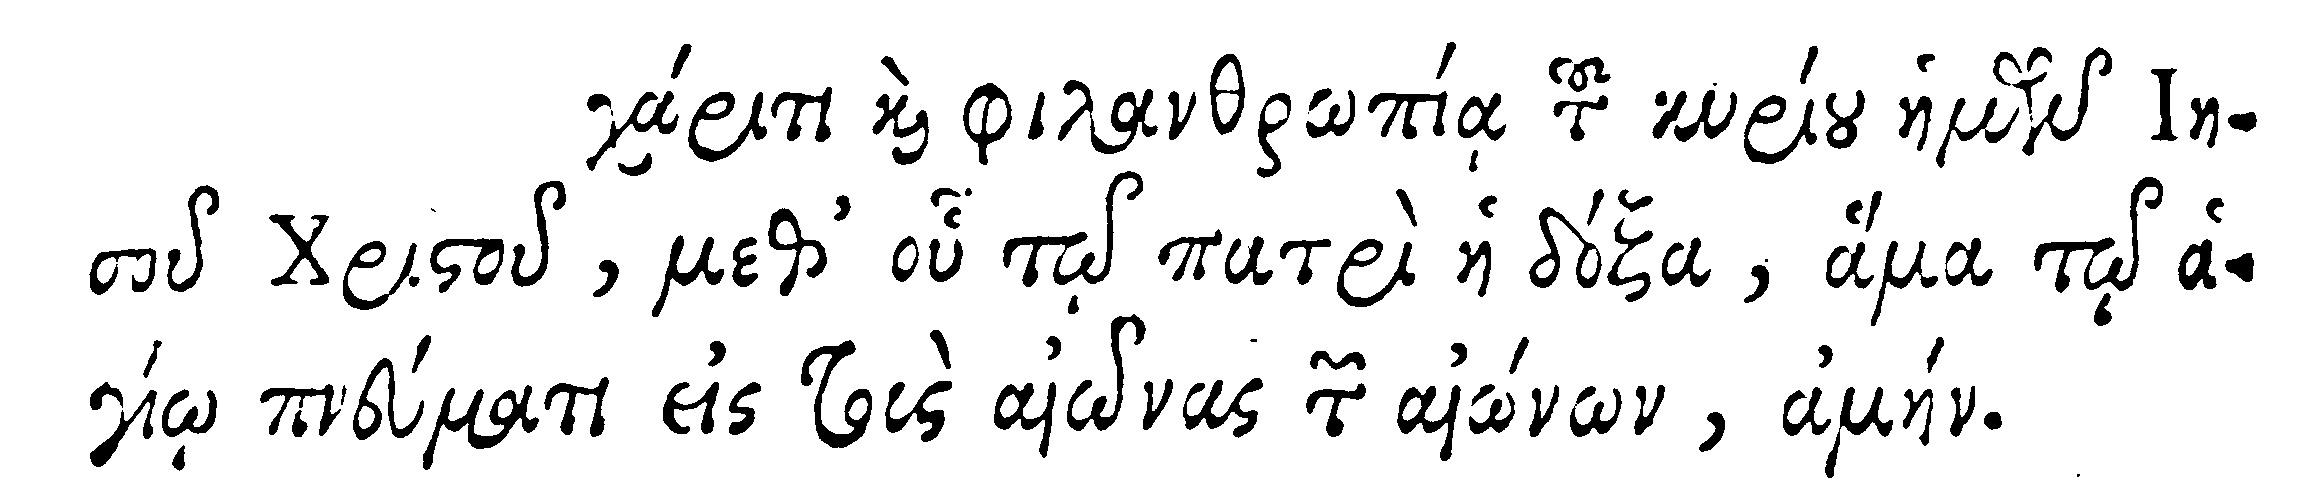 χάριτι καὶ φιλανθρωπίᾳ τοῦ κυρίου ἡμῶν Ιη-
σοῦ Χριστοῦ, μεθ’ οὗ τῷ πατρὶ ἡ δόξα, ἅμα τῷ ἁ-
γίῳ πνεύματι εἰς τοὺς αἰῶνας τῶν αἰώνων, ἀμήν.